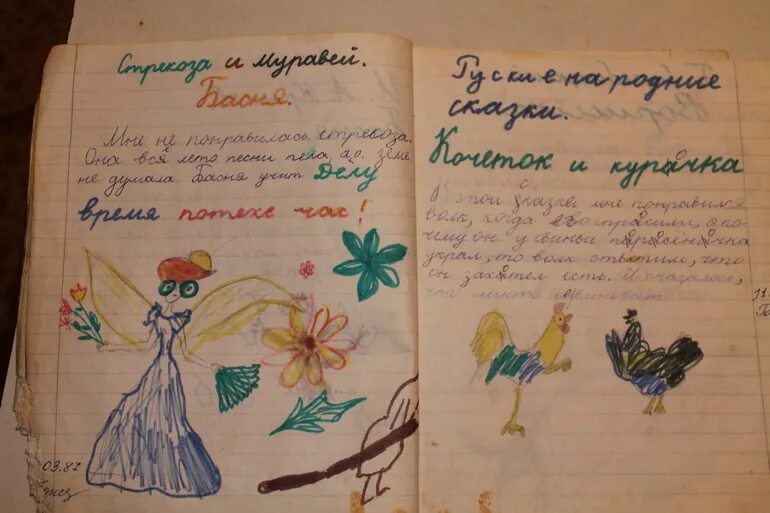 Стрекоза и Муравей.
Басня.
Мне не понравилась стрекоза.
Она вся лето песни пела, а о зиме
не думала. Басня учит Делу
время потехе час!
03.87
Руские народние
сказки.
Кочеток и курочка
В этой сказке мне понравился
волк, когда его спросили, а по-
чему он у свиньи поросёночка
украл, то волк ответил, что
он захотел есть. И оказалось,
что никто